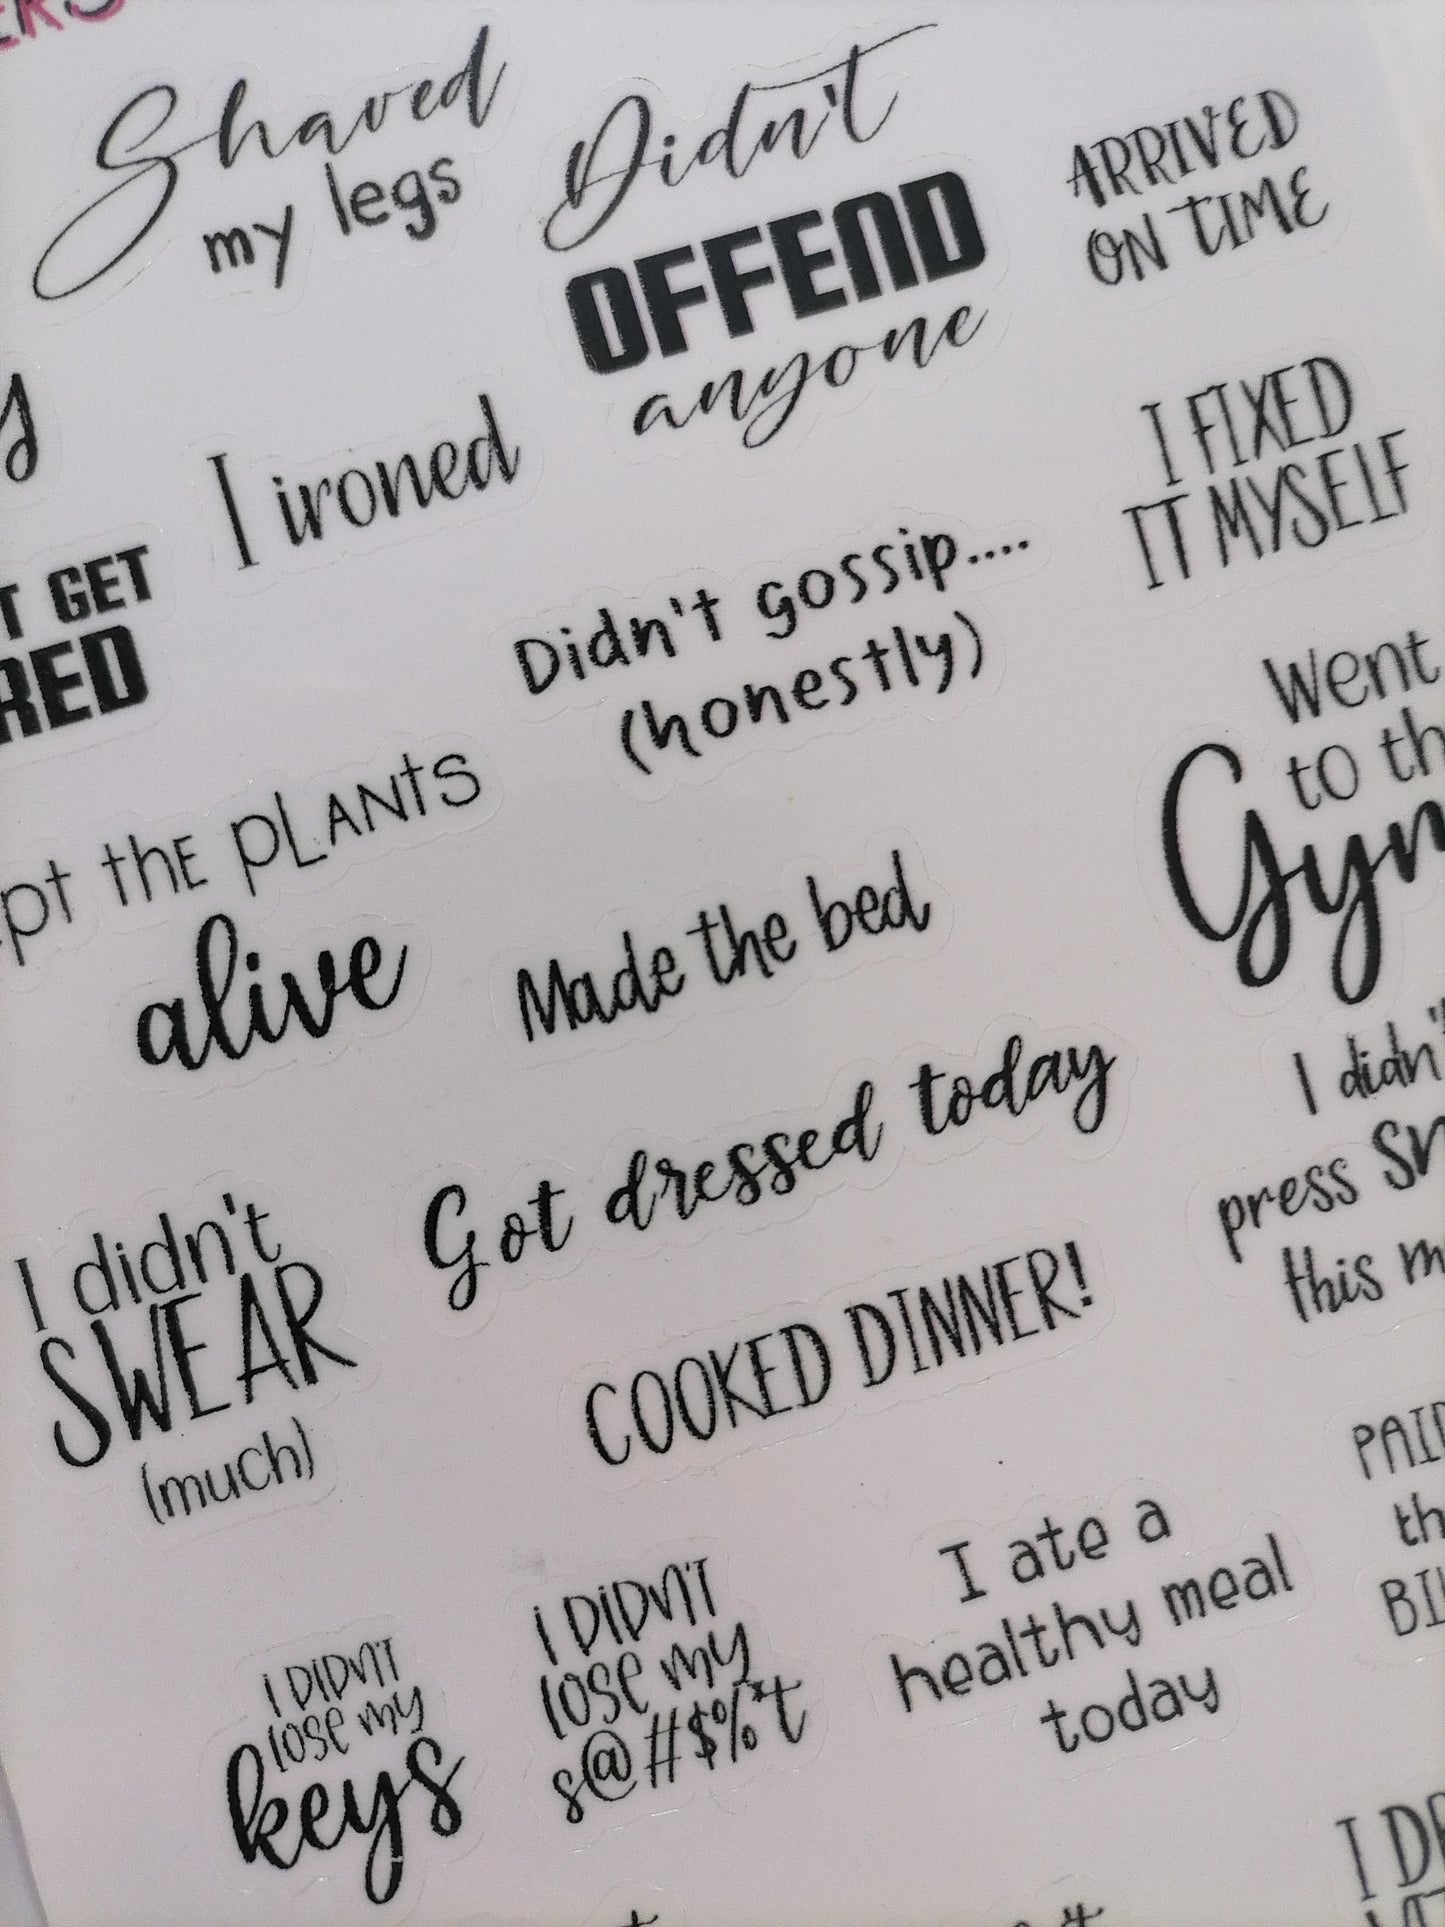 Shaved
my legs
Didn't
OFFEND
anyone
ARRIVED
ON TIME
I ironed
I FIXED
IT MYSELF
GET
Didn't gossip....
(honestly)
Went
to
the PLANTS
alive
Made the bed
Got dressed today
I didn't
SWEAR
(much)
press
this
COOKED DINNER!
I ate a
healthy meal
today
i DIDN'T
lose my
keys
i DIDN'T
lose my
s@#$%*t
I